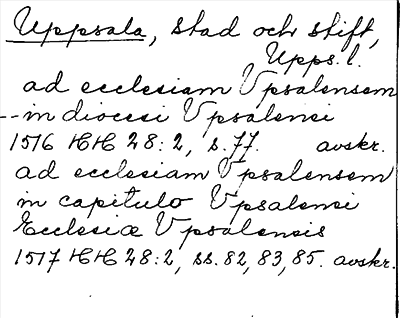 Uppsala, stad och stift,
Upps. l.
ad ecclesiam Vpsalensem
-- in diocesi Vpsalensi
1516 HH 28:2, s. 77. avskr.
ad ecclesiam Vpsalensem
in capitulo Vpsalensi
Ecclesiæ Vpsalensis
1517 HH 28:2, ss. 82, 83, 85. avskr.